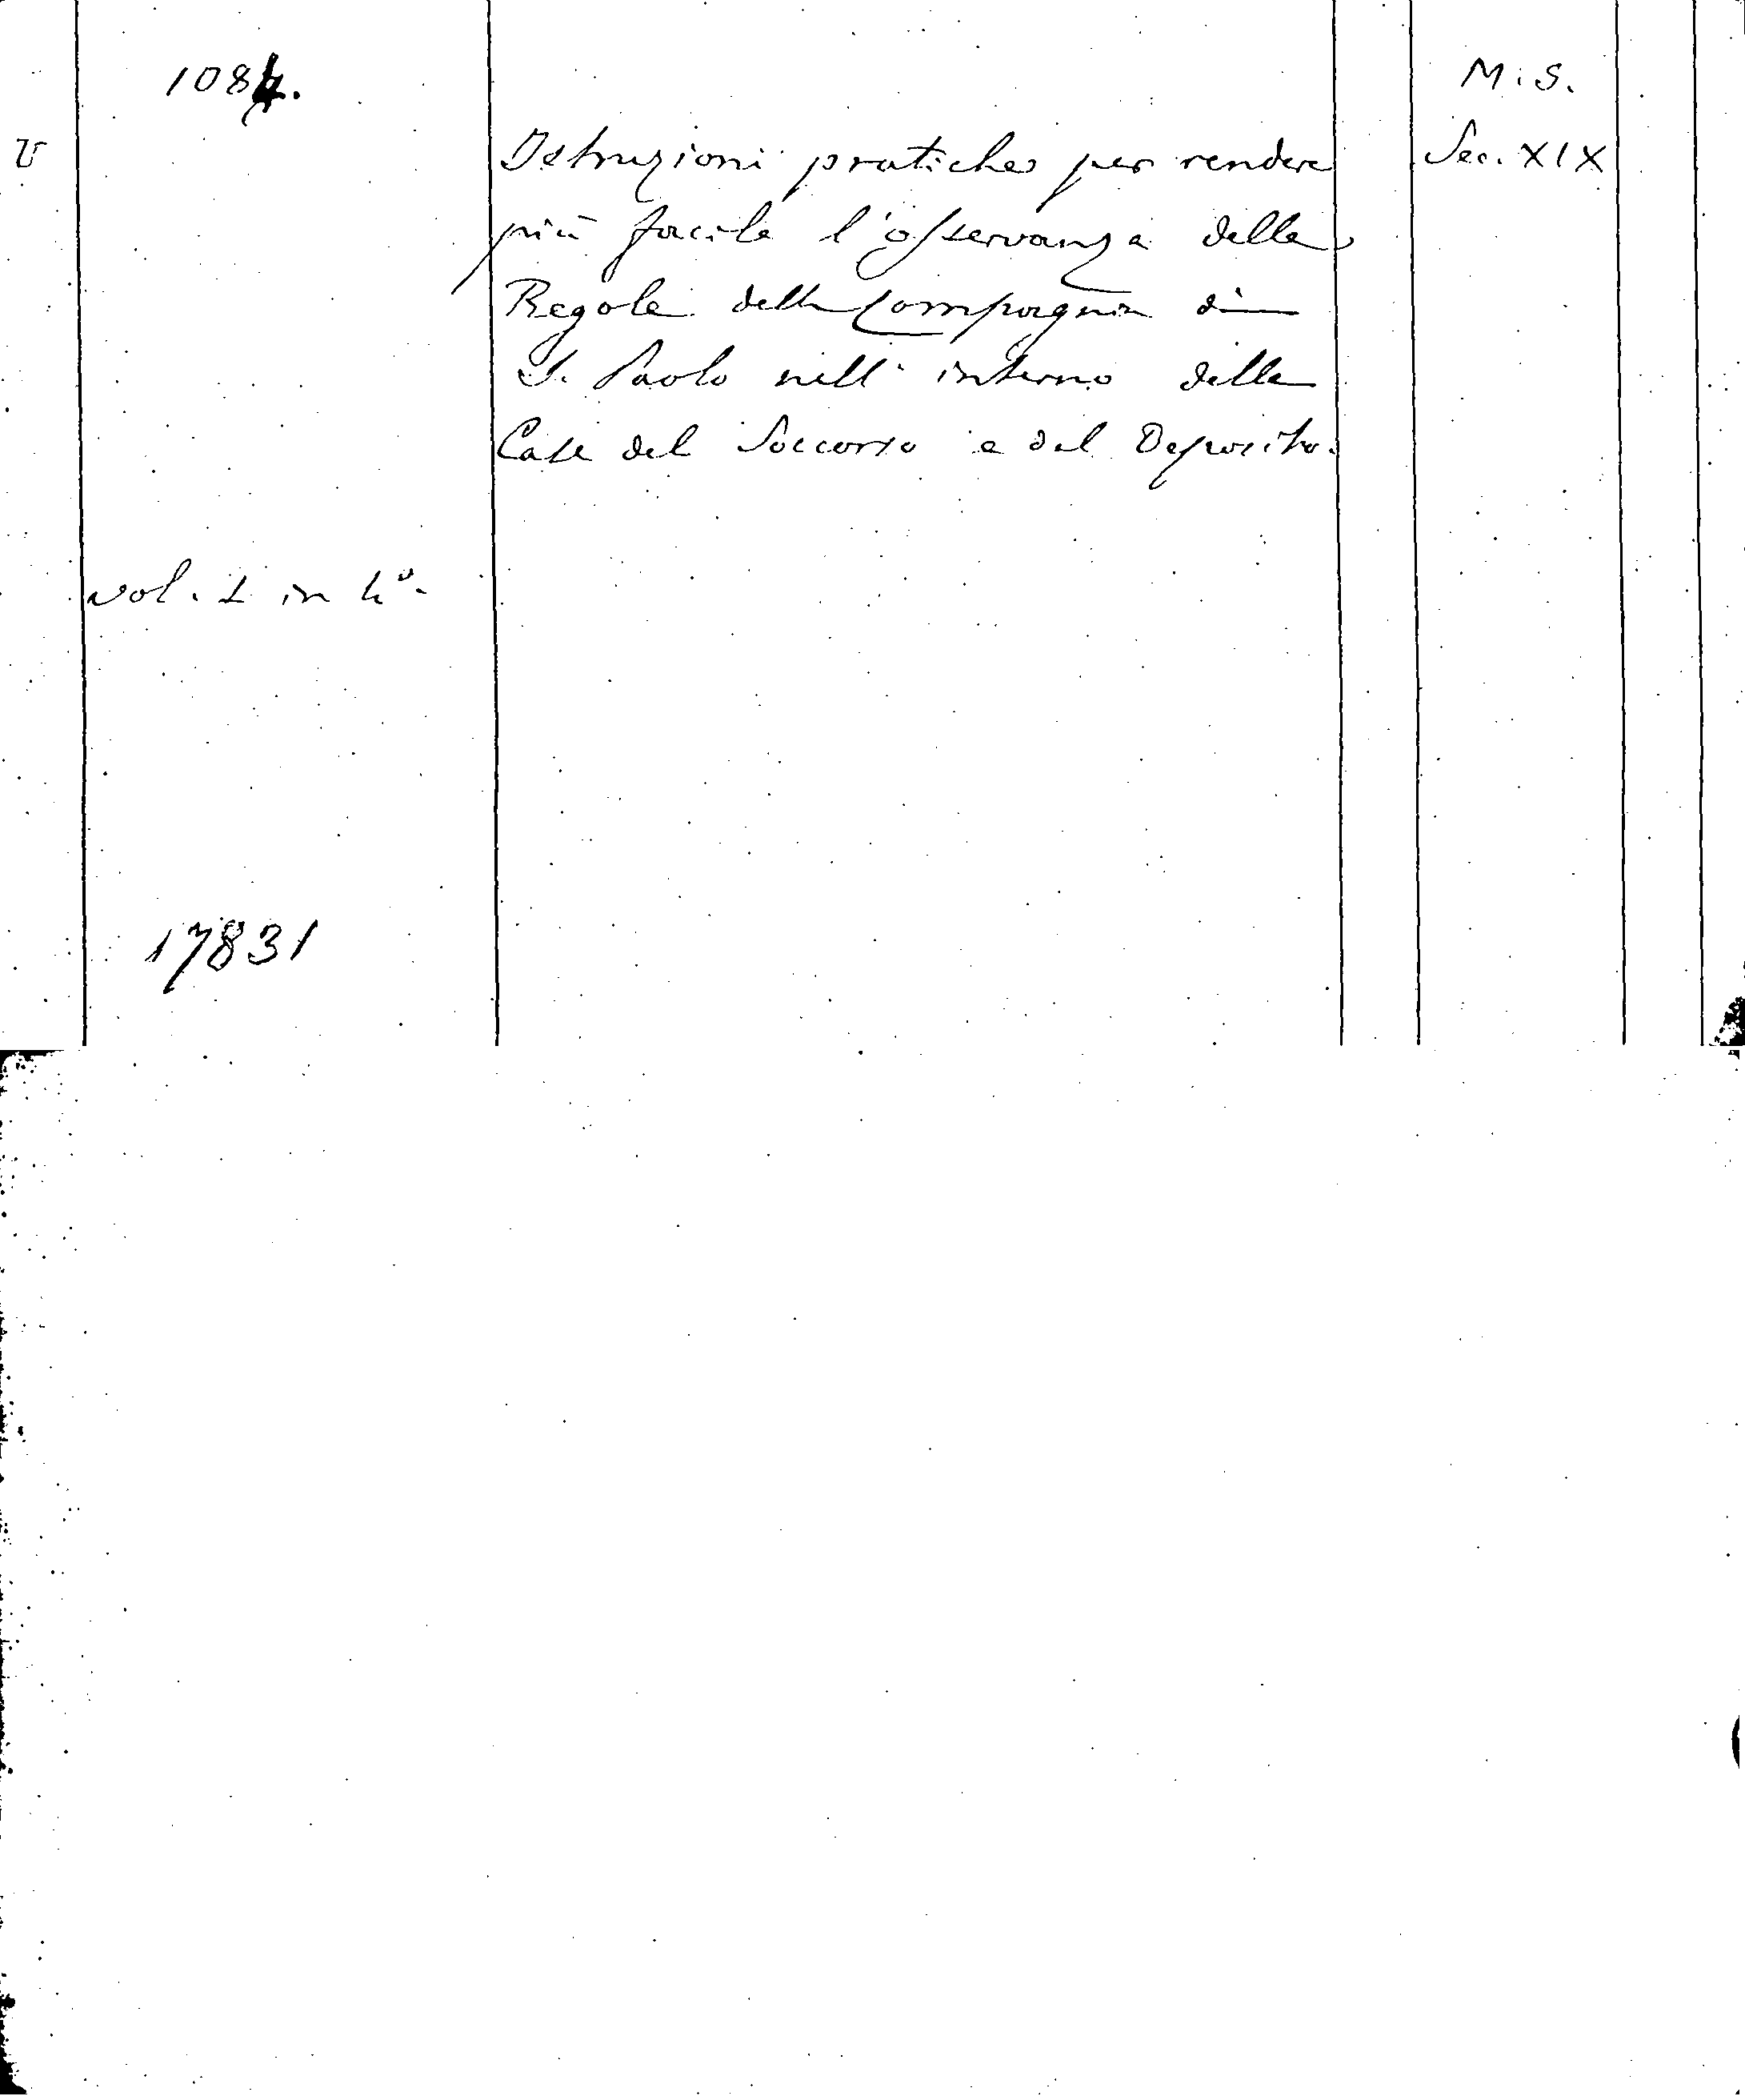 1084.
M.S.
V
Istruzioni pratiche per rendere
Sec. XIX
più facile l'osservanza delle
Regole della Compagnia di
S. Paolo nell'interno delle
Case del Soccorso e del Deposito.
vol. 1 in 4°.
17831